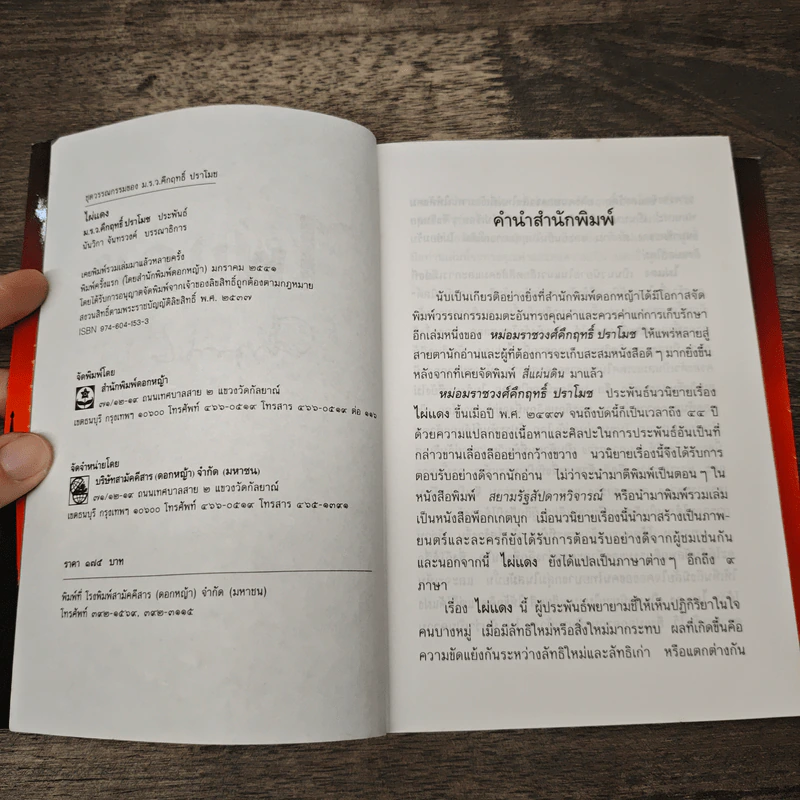 ชุดวรรณกรรมของ ม.ร.ว.คึกฤทธิ์ ปราโมช
ไผ่แดง
ม.ร.ว.คึกฤทธิ์ ปราโมช ประพันธ์
นันวิภา จันทรวงศ์ บรรณาธิการ
เคยพิมพ์รวมเล่มมาแล้วหลายครั้ง
พิมพ์ครั้งแรก (โดยสำนักพิมพ์ดอกหญ้า) มกราคม ๒๕๔๑
โดยได้รับการอนุญาตจัดพิมพ์จากเจ้าของลิขสิทธิ์ถูกต้องตามกฎหมาย
สงวนสิทธิ์ตามพระราชบัญญัติลิขสิทธิ์ พ.ศ. ๒๕๓๗
ISBN 974-604-153-3
จัดพิมพ์โดย
สำนักพิมพ์ดอกหญ้า
๗๑/๑๒-๑๙ ถนนเทศบาลสาย ๒ แขวงวัดกัลยาณ์
เขตธนบุรี กรุงเทพฯ ๑๐๖๐๐ โทรศัพท์ ๔๖๖-๐๕๑๙ โทรสาร ๔๖๖-๐๕๑๙ ต่อ ๑๑๖
จัดจำหน่ายโดย
บริษัทสามัคคีสาร (ดอกหญ้า) จำกัด (มหาชน)
๗๑/๑๒-๑๙ ถนนเทศบาลสาย ๒ แขวงวัดกัลยาณ์
เขตธนบุรี กรุงเทพฯ ๑๐๖๐๐ โทรศัพท์ ๔๖๖-๐๕๑๙ โทรสาร ๔๖๕-๑๓๙๑
ราคา ๑๗๕ บาท
พิมพ์ที่ โรงพิมพ์สามัคคีสาร (ดอกหญ้า) จำกัด (มหาชน)
โทรศัพท์ ๓๙๒-๑๕๖๙, ๓๙๒-๓๑๑๕
คำนำสำนักพิมพ์
นับเป็นเกียรติอย่างยิ่งที่สำนักพิมพ์ดอกหญ้าได้มีโอกาสจัด
พิมพ์วรรณกรรมอมตะอันทรงคุณค่าและควรค่าแก่การเก็บรักษา
อีกเล่มหนึ่งของ หม่อมราชวงศ์คึกฤทธิ์ ปราโมช ให้แพร่หลายสู่
สายตานักอ่านและผู้ที่ต้องการจะเก็บสะสมหนังสือดี ๆ มากยิ่งขึ้น
หลังจากที่เคยจัดพิมพ์ สี่แผ่นดิน มาแล้ว
หม่อมราชวงศ์คึกฤทธิ์ ปราโมช ประพันธ์นวนิยายเรื่อง
ไผ่แดง ขึ้นเมื่อปี พ.ศ. ๒๔๙๗ จนถึงบัดนี้ก็เป็นเวลาถึง ๔๔ ปี
ด้วยความแปลกของเนื้อหาและศิลปะในการประพันธ์อันเป็นที่
กล่าวขานเลื่องลืออย่างกว้างขวาง นวนิยายเรื่องนี้จึงได้รับการ
ตอบรับอย่างดีจากนักอ่าน ไม่ว่าจะนำมาตีพิมพ์เป็นตอน ๆ ใน
หนังสือพิมพ์ สยามรัฐสัปดาหวิจารณ์ หรือนำมาพิมพ์รวมเล่ม
เป็นหนังสือพ็อกเกตบุก เมื่อนวนิยายเรื่องนี้นำมาสร้างเป็นภาพ-
ยนตร์และละครก็ยังได้รับการต้อนรับอย่างดีจากผู้ชมเช่นกัน
และนอกจากนี้ ไผ่แดง ยังได้แปลเป็นภาษาต่าง ๆ อีกถึง ๙
ภาษา
เรื่อง ไผ่แดง นี้ ผู้ประพันธ์พยายามชี้ให้เห็นปฏิกิริยาในใจ
คนบางหมู่ เมื่อมีลัทธิใหม่หรือสิ่งใหม่มากระทบ ผลที่เกิดขึ้นคือ
ความขัดแย้งกันระหว่างลัทธิใหม่และลัทธิเก่า หรือแตกต่างกัน